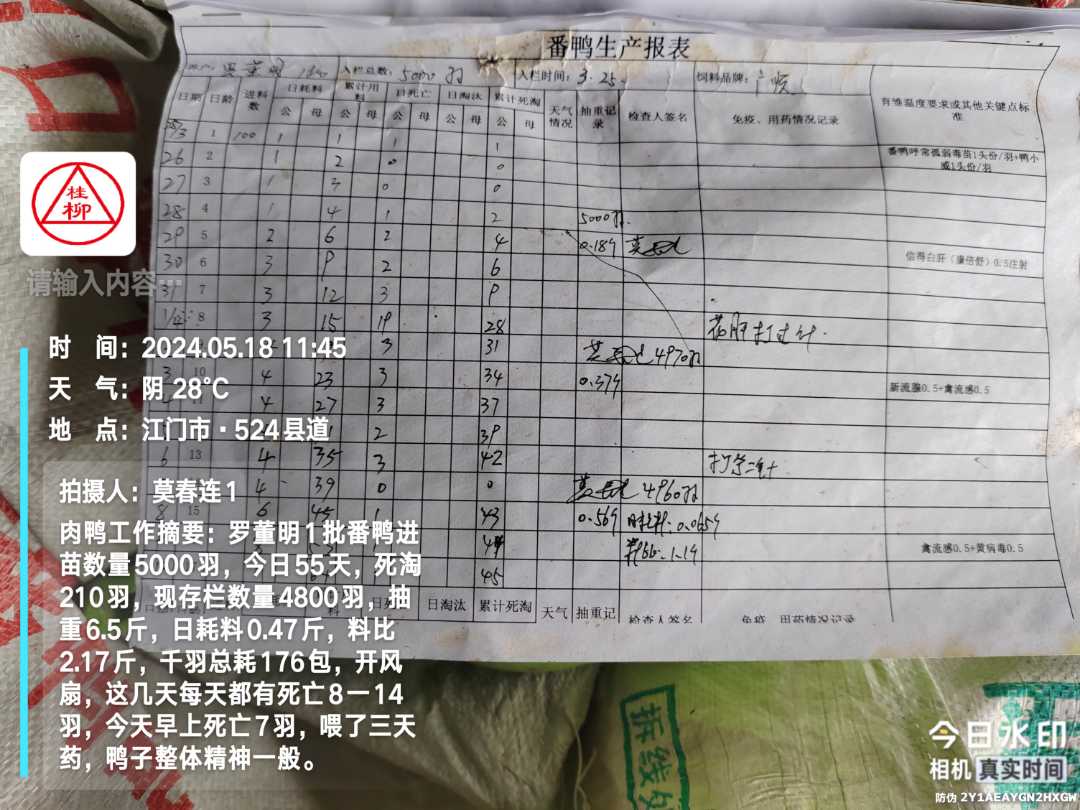 番鸭生产报表
入栏总数：5000羽 入栏时间：3.25 饲料品牌：
日期 日龄 进料数 日耗料 累计用料 日死亡 日淘汰 累计死淘 天气情况 抽重记录 检查人签名 免疫、用药情况记录 有雏温度要求或其他关键点标准
公 母 公 母 公 母 公 母 公 母
1 100 1 1 1 1
26 2 1 2 0 0 番鸭呼常孤弱毒苗1头份/羽+鸭小
威1头份/羽
27 3 1 3 0 0
28 4 1 4 1 2 5000羽
29 5 2 6 2 4 0.189
30 6 3 9 2 6 信得白肝（康倍舒）0.5注射
31 7 3 12 3 9
8 3 15 19 28 花肝打过针
3 31 4970羽
3 10 4 23 3 34 0.379 新流腺0.5+禽流感0.5
4 27 3 37
2 39
6 13 4 35 3 42
4 39 0 0 4960羽
8 15 6 45 1 43 0.569
禽流感0.5+黄病毒0.5
45
日淘汰 累计死淘 天气 抽重记 检查人签名 免疫、用药情况记录
桂
柳
请输入内容…
时 间：2024.05.18 11:45
天 气：阴 28℃
地 点：江门市·524县道
拍摄人：莫春连1
肉鸭工作摘要：罗董明1批番鸭进
苗数量5000羽，今日55天，死淘
210羽，现存栏数量4800羽，抽
重6.5斤，日耗料0.47斤，料比
2.17斤，千羽总耗176包，开风
扇，这几天每天都有死亡8一14
羽，今天早上死亡7羽，喂了三天
药，鸭子整体精神一般。
拆线处
今日水印
相机 真实时间
防伪 2Y1AEAYGN2HXGW